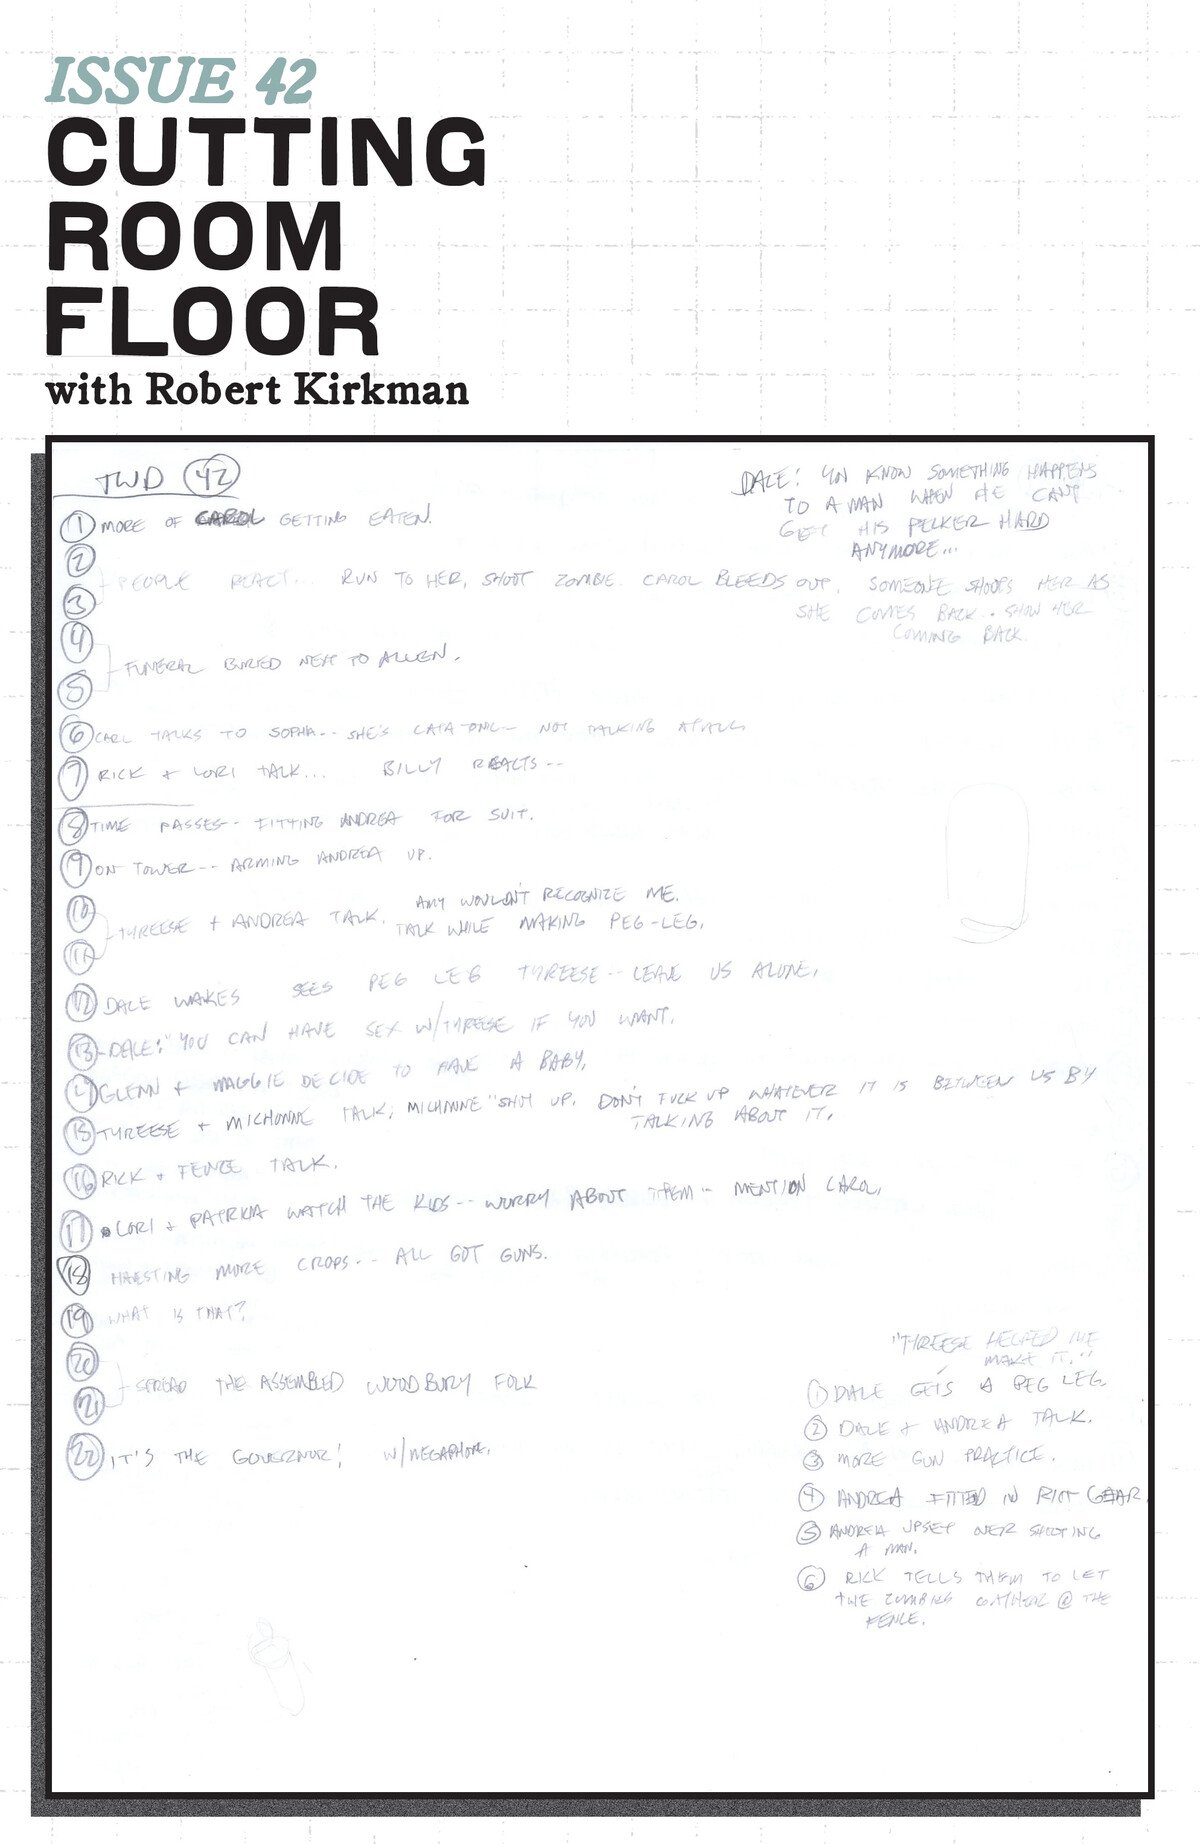 ISSUE 42
CUTTING
ROOM
FLOOR
with Robert Kirkman
TWD 42
DALE: YOU KNOW SOMETHING HAPPENS
TO A MAN WHEN HE CAN'T
GET HIS PECKER HARD
ANYMORE...
1 MORE OF CAROL GETTING EATEN.
2
3 PEOPLE REACT... RUN TO HER, SHOOT ZOMBIE. CAROL BLEEDS OUT. SOMEONE SHOOTS HER AS
SHE COMES BACK. SHOW HER
COMING BACK.
4
5 FUNERAL BURIED NEXT TO ALLEN.
6 CARL TALKS TO SOPHIA-- SHE'S CATATONIC-- NOT TALKING AT ALL.
7 RICK + LORI TALK... BILLY REACTS--
8 TIME PASSES-- FITTING ANDREA FOR SUIT.
9 ON TOWER-- ARMING ANDREA UP.
10
11 TYREESE + ANDREA TALK. AMY WOULDN'T RECOGNIZE ME.
TALK WHILE MAKING PEG-LEG.
12 DALE WAKES SEES PEG LEG TYREESE-- LEAVE US ALONE.
13 -DALE: "YOU CAN HAVE SEX W/TYREESE IF YOU WANT.
14 GLENN + MAGGIE DECIDE TO HAVE A BABY.
15 TYREESE + MICHONNE TALK, MICHONNE "SHUT UP. DON'T FUCK UP WHATEVER IT IS BETWEEN US BY
TALKING ABOUT IT.
16 RICK + FENCE TALK.
17 LORI + PATRICIA WATCH THE KIDS-- WORRY ABOUT THEM-- MENTION CAROL.
18 HAVESTING MORE CROPS-- ALL GOT GUNS.
19 WHAT IS THAT?
20
21 SPREAD THE ASSEMBLED WOODBURY FOLK
22 IT'S THE GOVERNOR! W/MEGAPHONE.
"TYREESE HELPED ME
MAKE IT."
1 DALE GETS A PEG LEG
2 DALE + ANDREA TALK.
3 MORE GUN PRACTICE.
4 ANDREA FITTED IN RIOT GEAR.
5 ANDREA UPSET OVER SHOOTING
A MAN.
6 RICK TELLS THEM TO LET
THE ZOMBIES GATHER @ THE
FENCE.